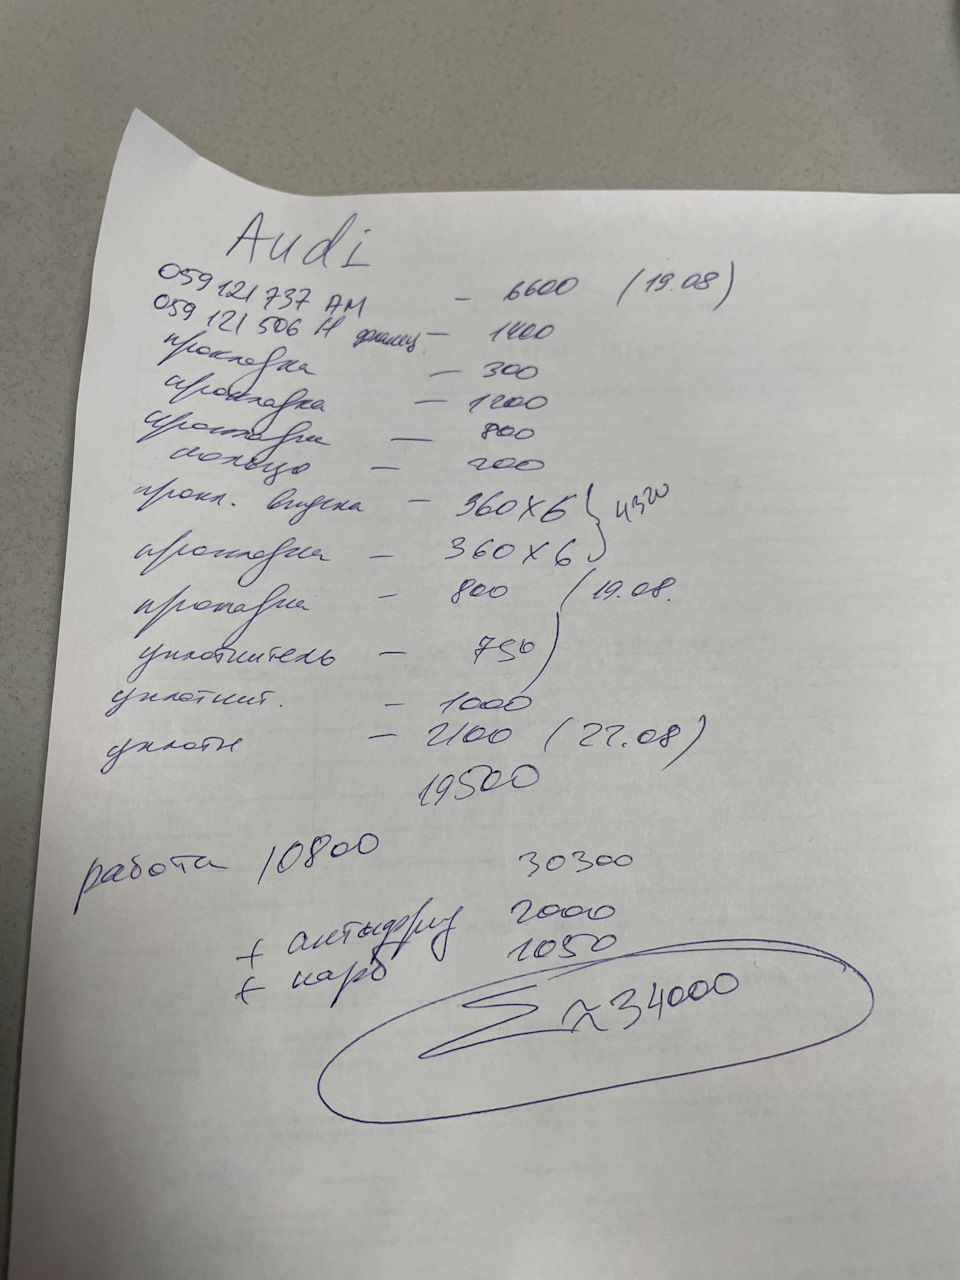 Audi
059 121 737 AM - 6600 (19.08)
059 121 506 H фланец - 1400
прокладка - 300
прокладка - 1200
проставки - 800
кольцо - 200
прокл. впуска - 360х6 } 4320
прокладка - 360х6
- 800 (19.08.
уплотнитель - 750
уплотнит. - 1000
уплотн - 2100 (22.08)
19500
работа 10800 30300
+ антифриз 2000
+ карб 1050
Σ ≈ 34000